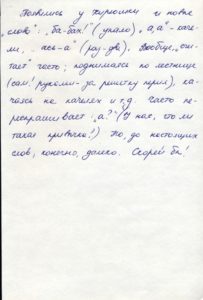 Появились у Кирюльки и новые
"слова": "ба-бах!" (упало), "а, а" - каче-
ли, "ась-а" (раз-два). Вообще, "счи-
тает" часто; поднимаясь по лестнице
(сам! руками - за решетку перил), ка-
чаясь на качелях и т.д. Часто пе-
респрашивает: "а?" (У нас, что ли
такая привычка!) Но, до настоящих
слов, конечно, далеко. Скорей бы!